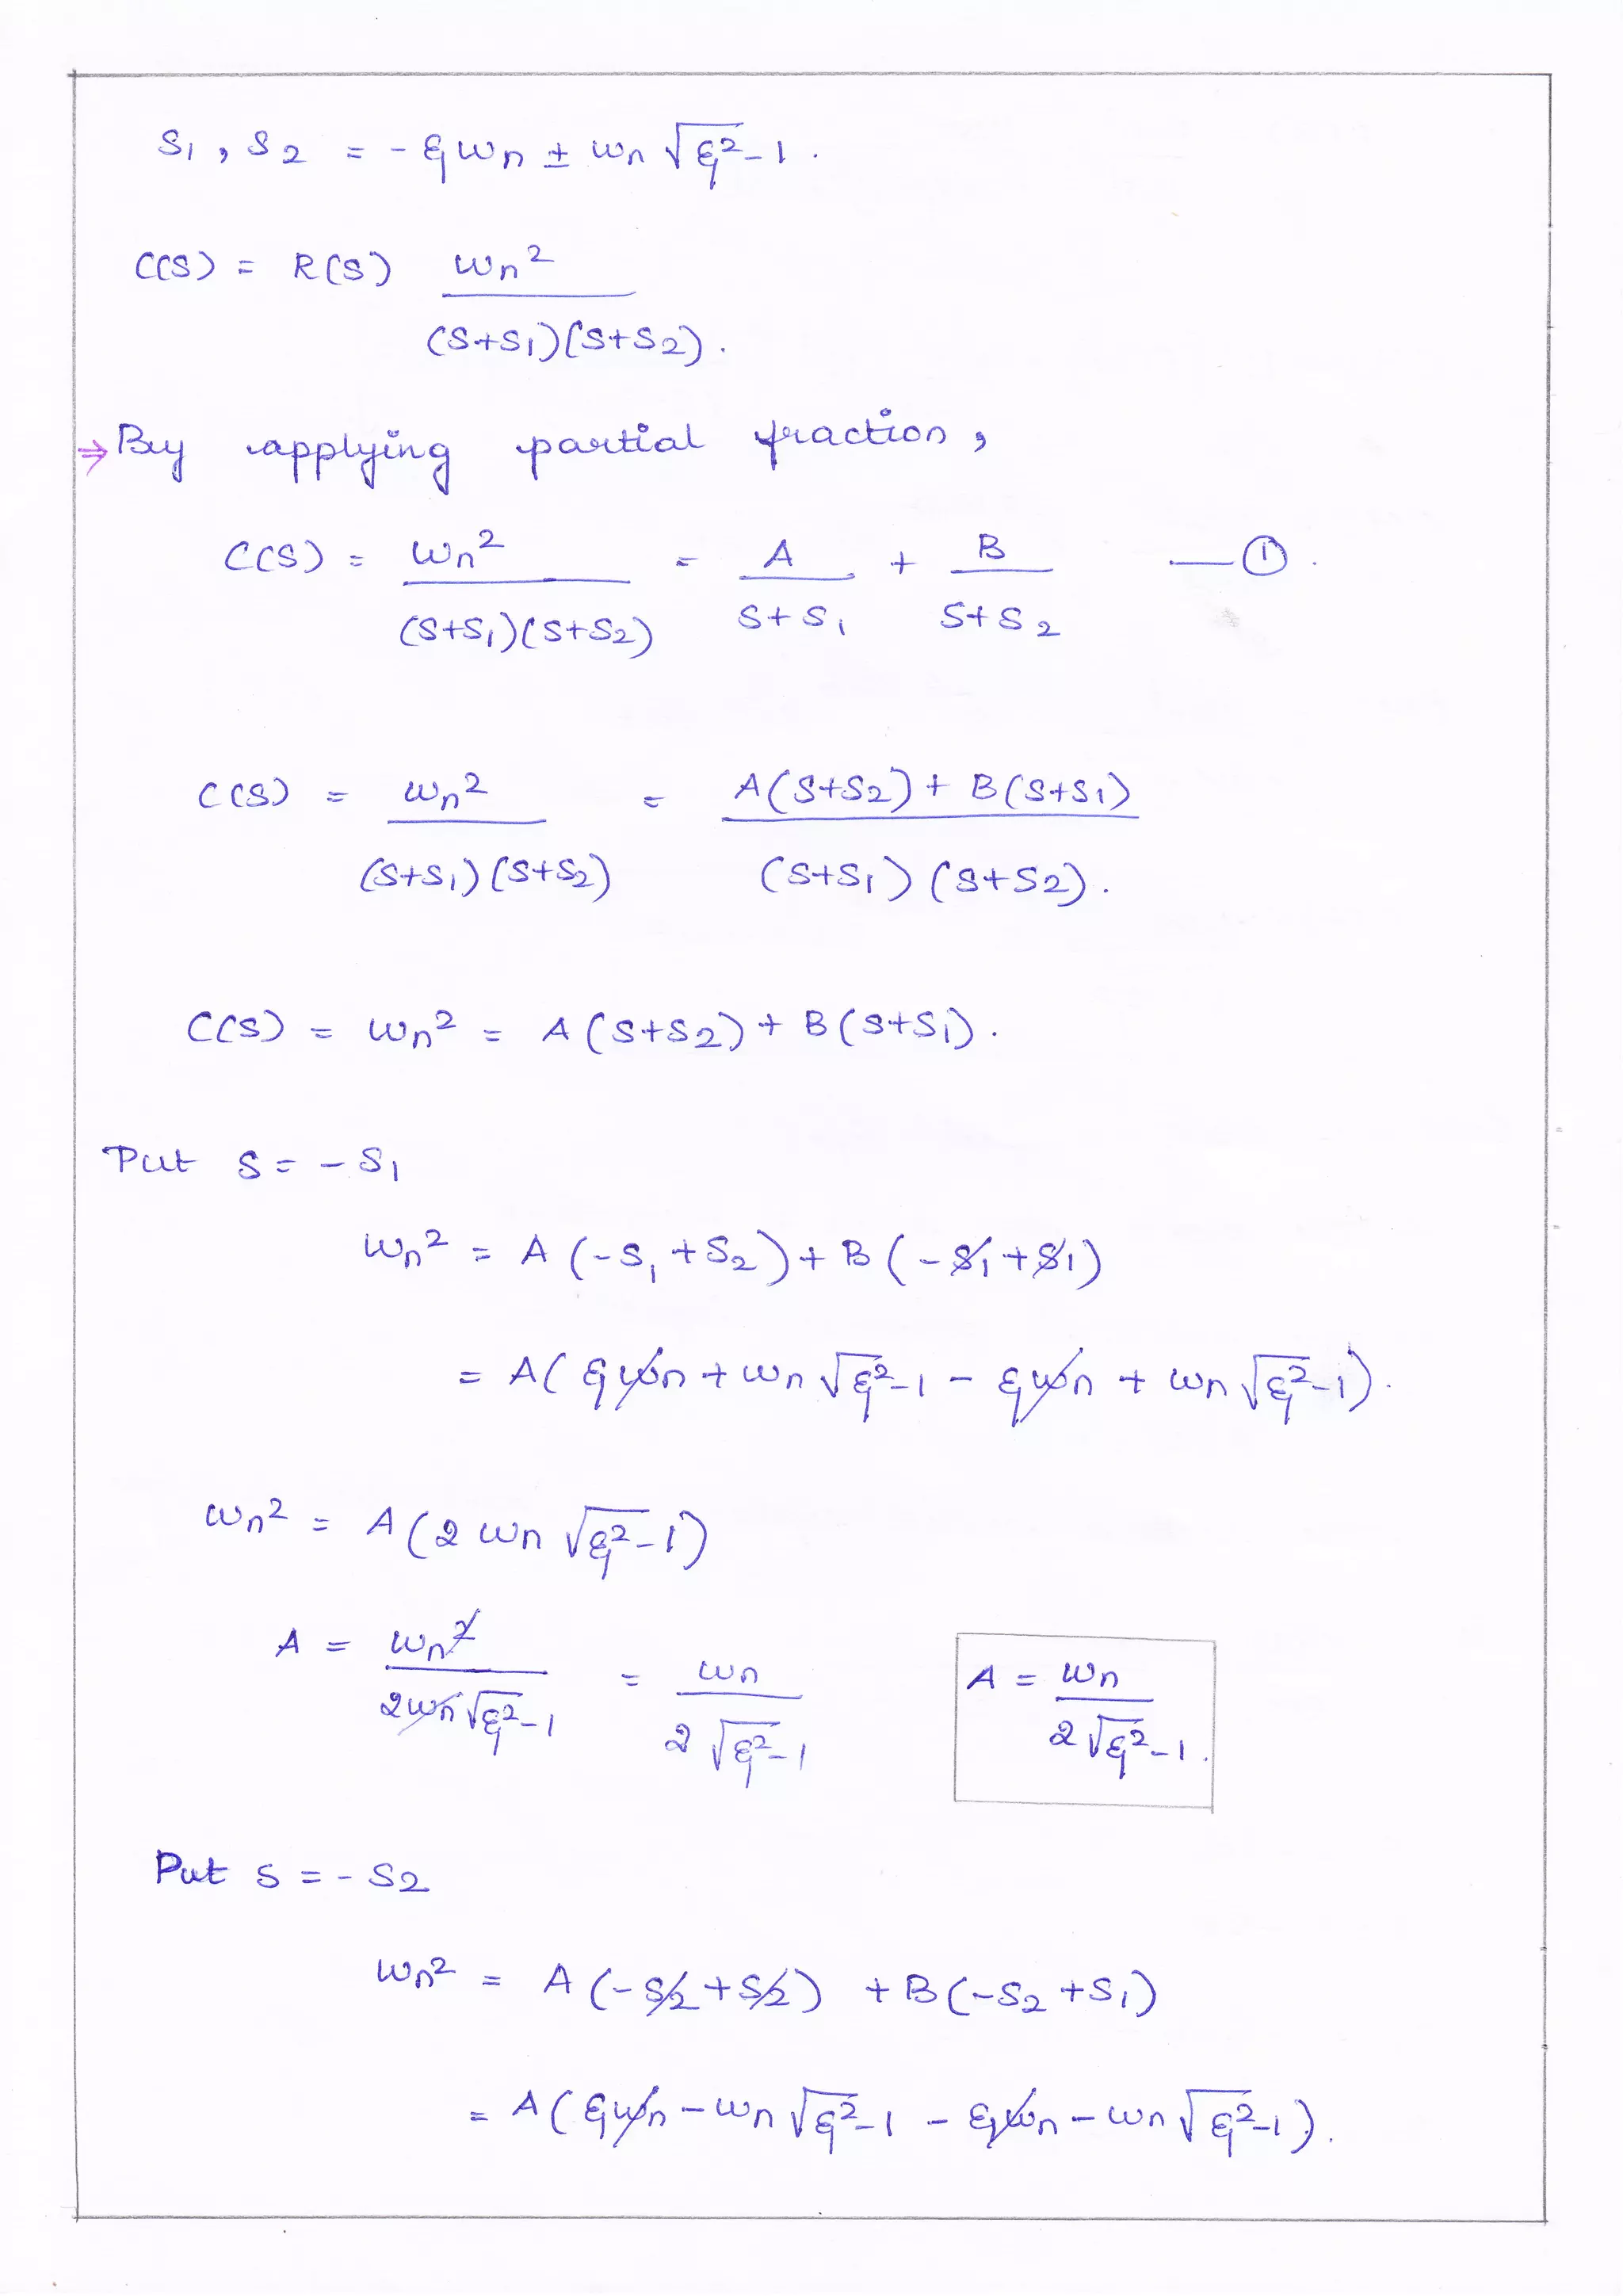 S1 , S2 = - ξωn ± ωn √ξ²-1 .
C(S) = R(S) ωn²
(S+S1)(S+S2) .
⇒ By applying partial fraction ,
C(S) = ωn² = A + B — ①.
(S+S1)(S+S2) S+S1 S+S2
C(S) = ωn² = A(S+S2) + B(S+S1)
(S+S1)(S+S2) (S+S1)(S+S2).
C(S) = ωn² = A(S+S2) + B(S+S1).
Put S = - S1
ωn² = A(-S1 +S2) + B(-S1 +S1)
= A( ξωn + ωn √ξ²-1 - ξωn + ωn √ξ²-1 ).
ωn² = A(2 ωn √ξ²-1)
A = ωn² = ωn A = ωn
2ωn√ξ²-1 2 √ξ²-1 2√ξ²-1.
Put S = - S2
ωn² = A(-S2 +S2) + B(-S2 +S1)
= A( ξωn - ωn √ξ²-1 - ξωn - ωn √ξ²-1 ).